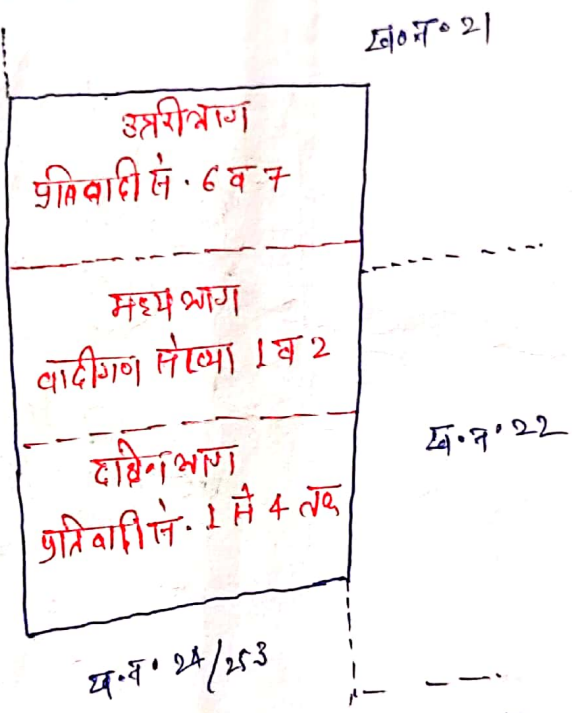 ख०न० 21
उत्तरी भाग
प्रतिवादी सं. 6 व 7
मध्य भाग
वादीगण संख्या 1 व 2
ख.न. 22
दक्षिण भाग
प्रतिवादी सं. 1 से 4 तक
ख.न. 24/253